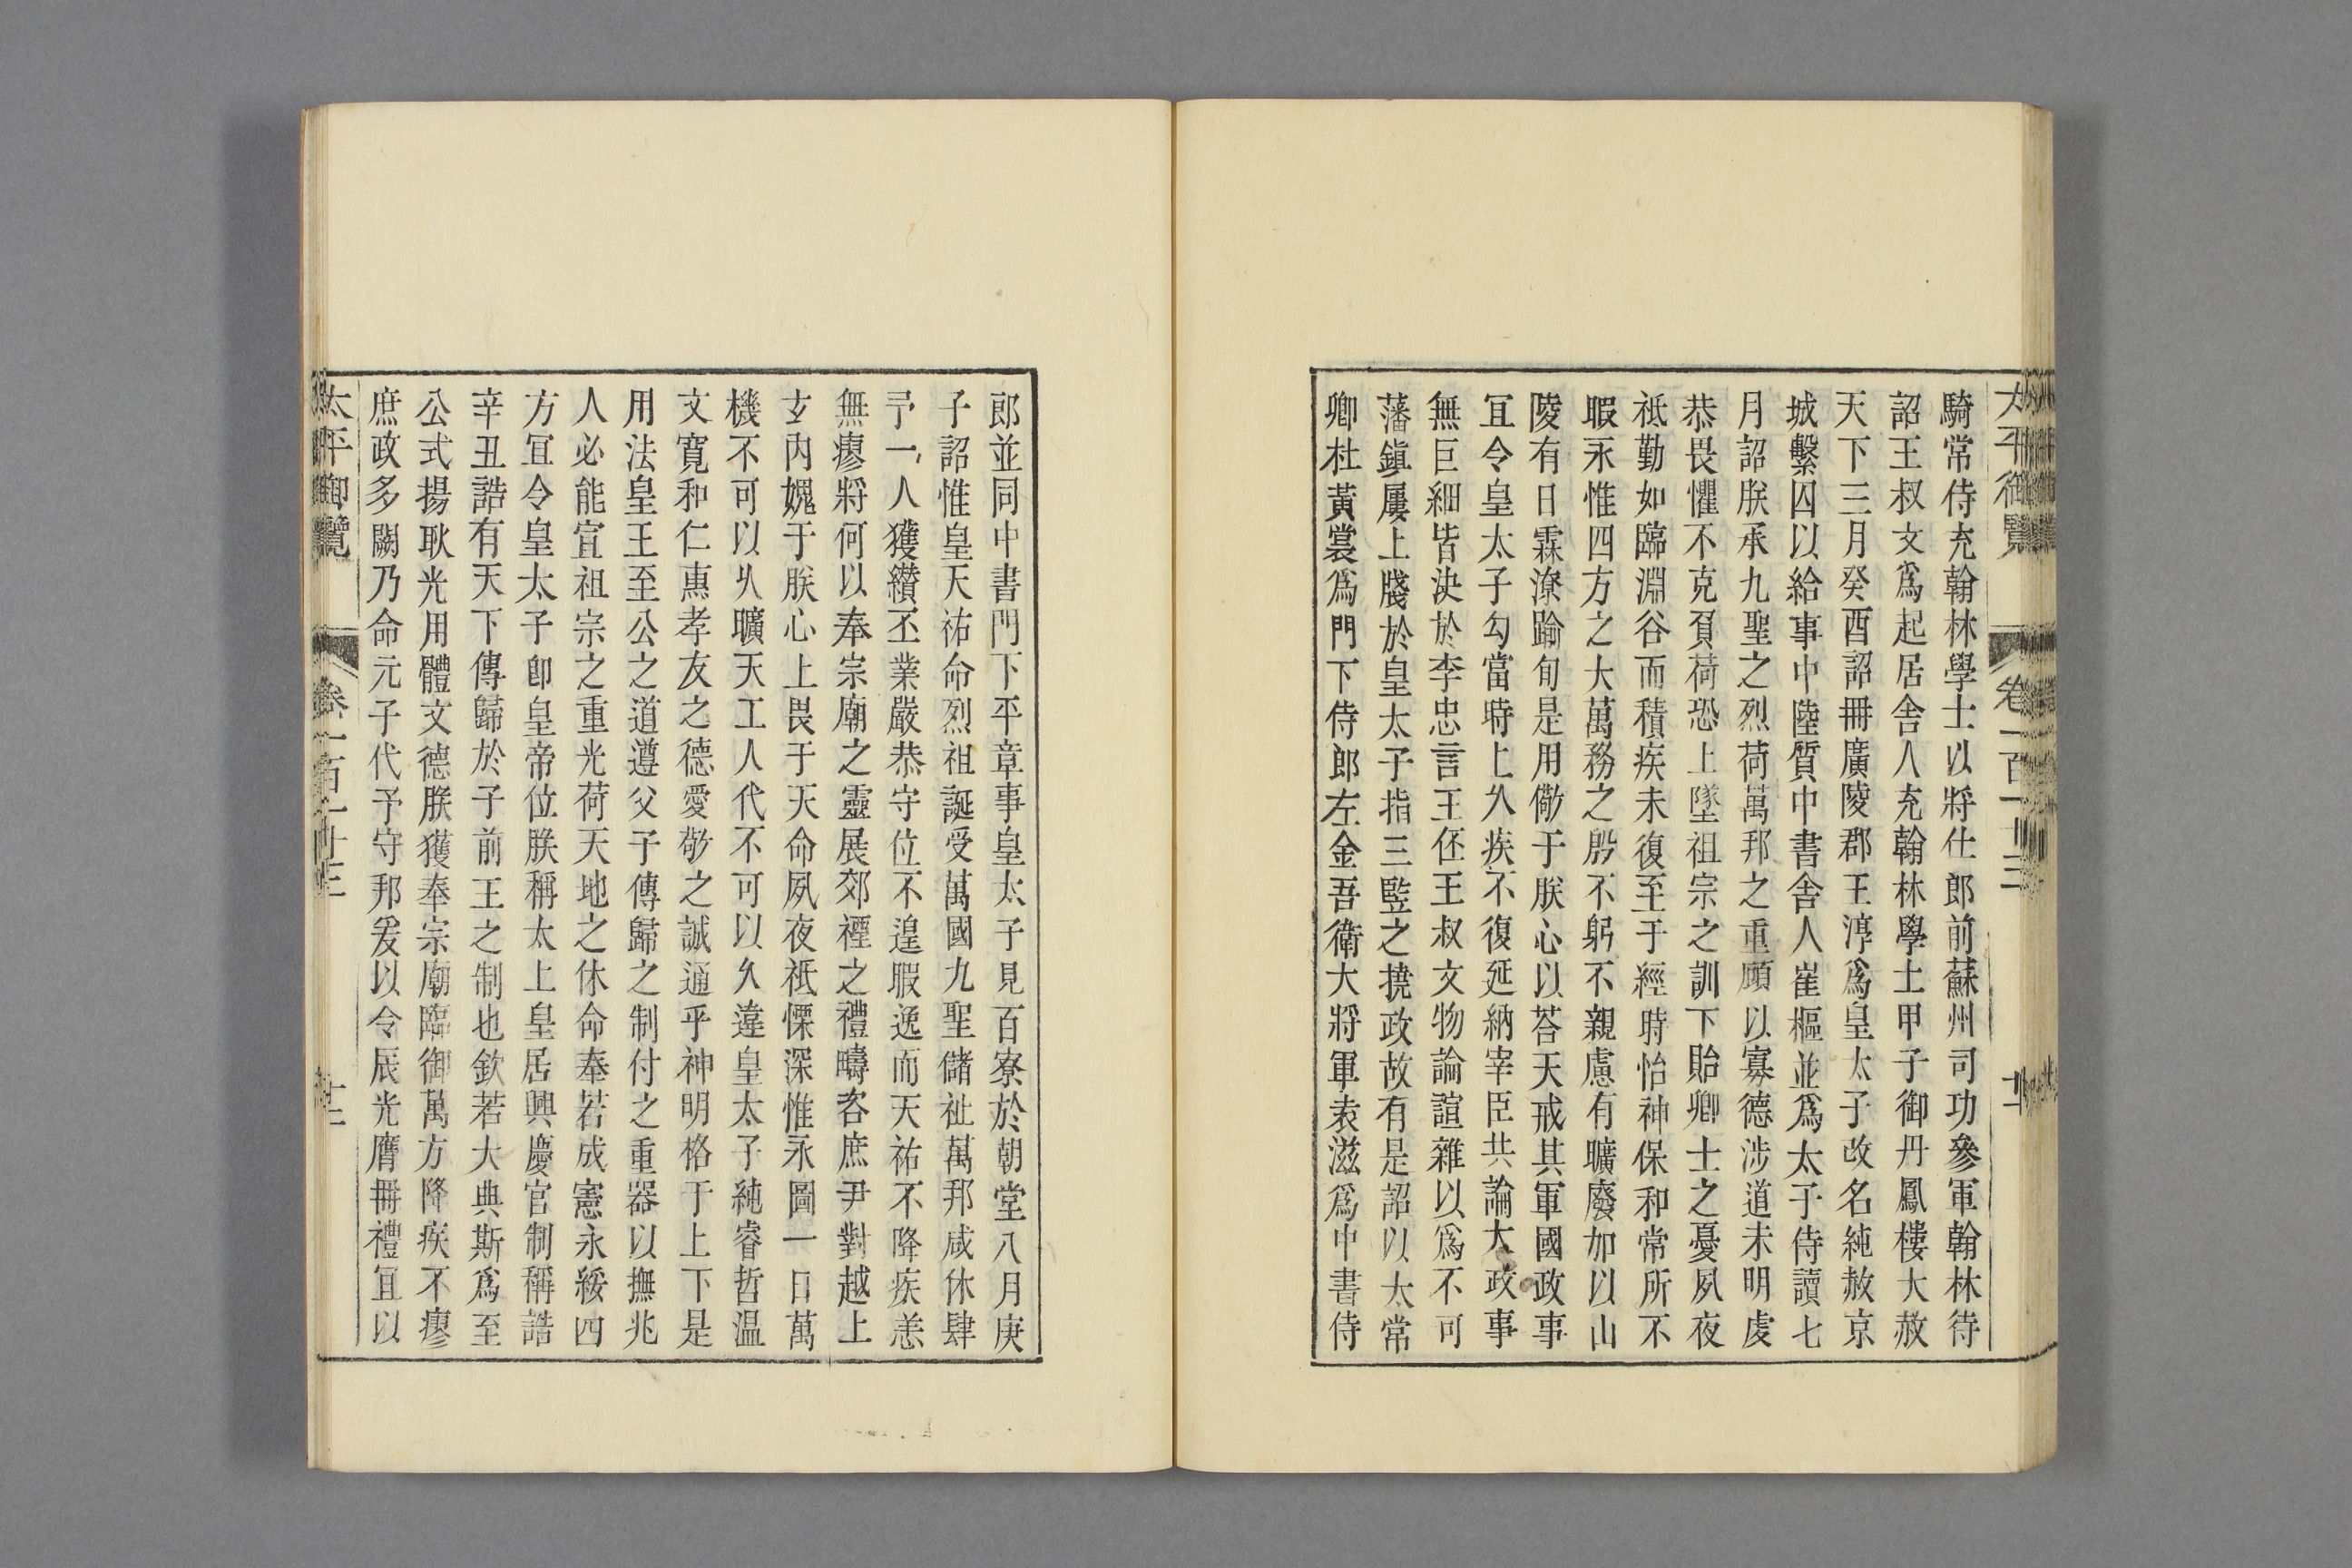 太平御覽 卷一百一十三 十一
騎常侍充翰林學士以將仕郎前蘇州司功參軍翰林待
詔王叔文爲起居舍人充翰林學士甲子御丹鳳樓大赦
天下三月癸酉詔冊廣陵郡王淳爲皇太子改名純赦京
城繫囚以給事中陸質中書舍人崔樞並爲太子侍讀七
月詔朕承九聖之烈荷萬邦之重顧以寡德涉道未明虔
恭畏懼不克負荷恐上墜祖宗之訓下貽卿士之憂夙夜
祇勤如臨淵谷而積疾未復至于經時怡神保和常所不
暇永惟四方之大萬務之殷不躬不親慮有曠廢加以山
陵有日霖潦踰旬是用儆于朕心以荅天戒其軍國政事
宜令皇太子勾當時上久疾不復延納宰臣共論大政事
無巨細皆決於李忠言王伾王叔文物論諠雜以爲不可
藩鎮屢上牋於皇太子指三竪之撓政故有是詔以太常
卿杜黃裳爲門下侍郎左金吾衛大將軍袁滋爲中書侍
郎並同中書門下平章事皇太子見百寮於朝堂八月庚
子詔惟皇天祐命烈祖誕受萬國九聖儲祉萬邦咸休肆
予一人獲纘丕業嚴恭守位不遑暇逸而天祐不降疾恙
無瘳將何以奉宗廟之靈展郊禋之禮疇咨庶尹對越上
玄內媿于朕心上畏于天命夙夜祇慄深惟永圖一日萬
機不可以久曠天工人代不可以久違皇太子純睿哲温
文寬和仁惠孝友之德愛敬之誠通乎神明格于上下是
用法皇王至公之道遵父子傳歸之制付之重器以撫兆
人必能宣祖宗之重光荷天地之休命奉若成憲永綏四
方宜令皇太子卽皇帝位朕稱太上皇居興慶宮制稱誥
辛丑誥有天下傳歸於子前王之制也欽若大典斯爲至
公式揚耿光用體文德朕獲奉宗廟臨御萬方降疾不瘳
庶政多闕乃命元子代予守邦爰以令辰光膺冊禮宜以
太平御覽 卷一百一十三 十二